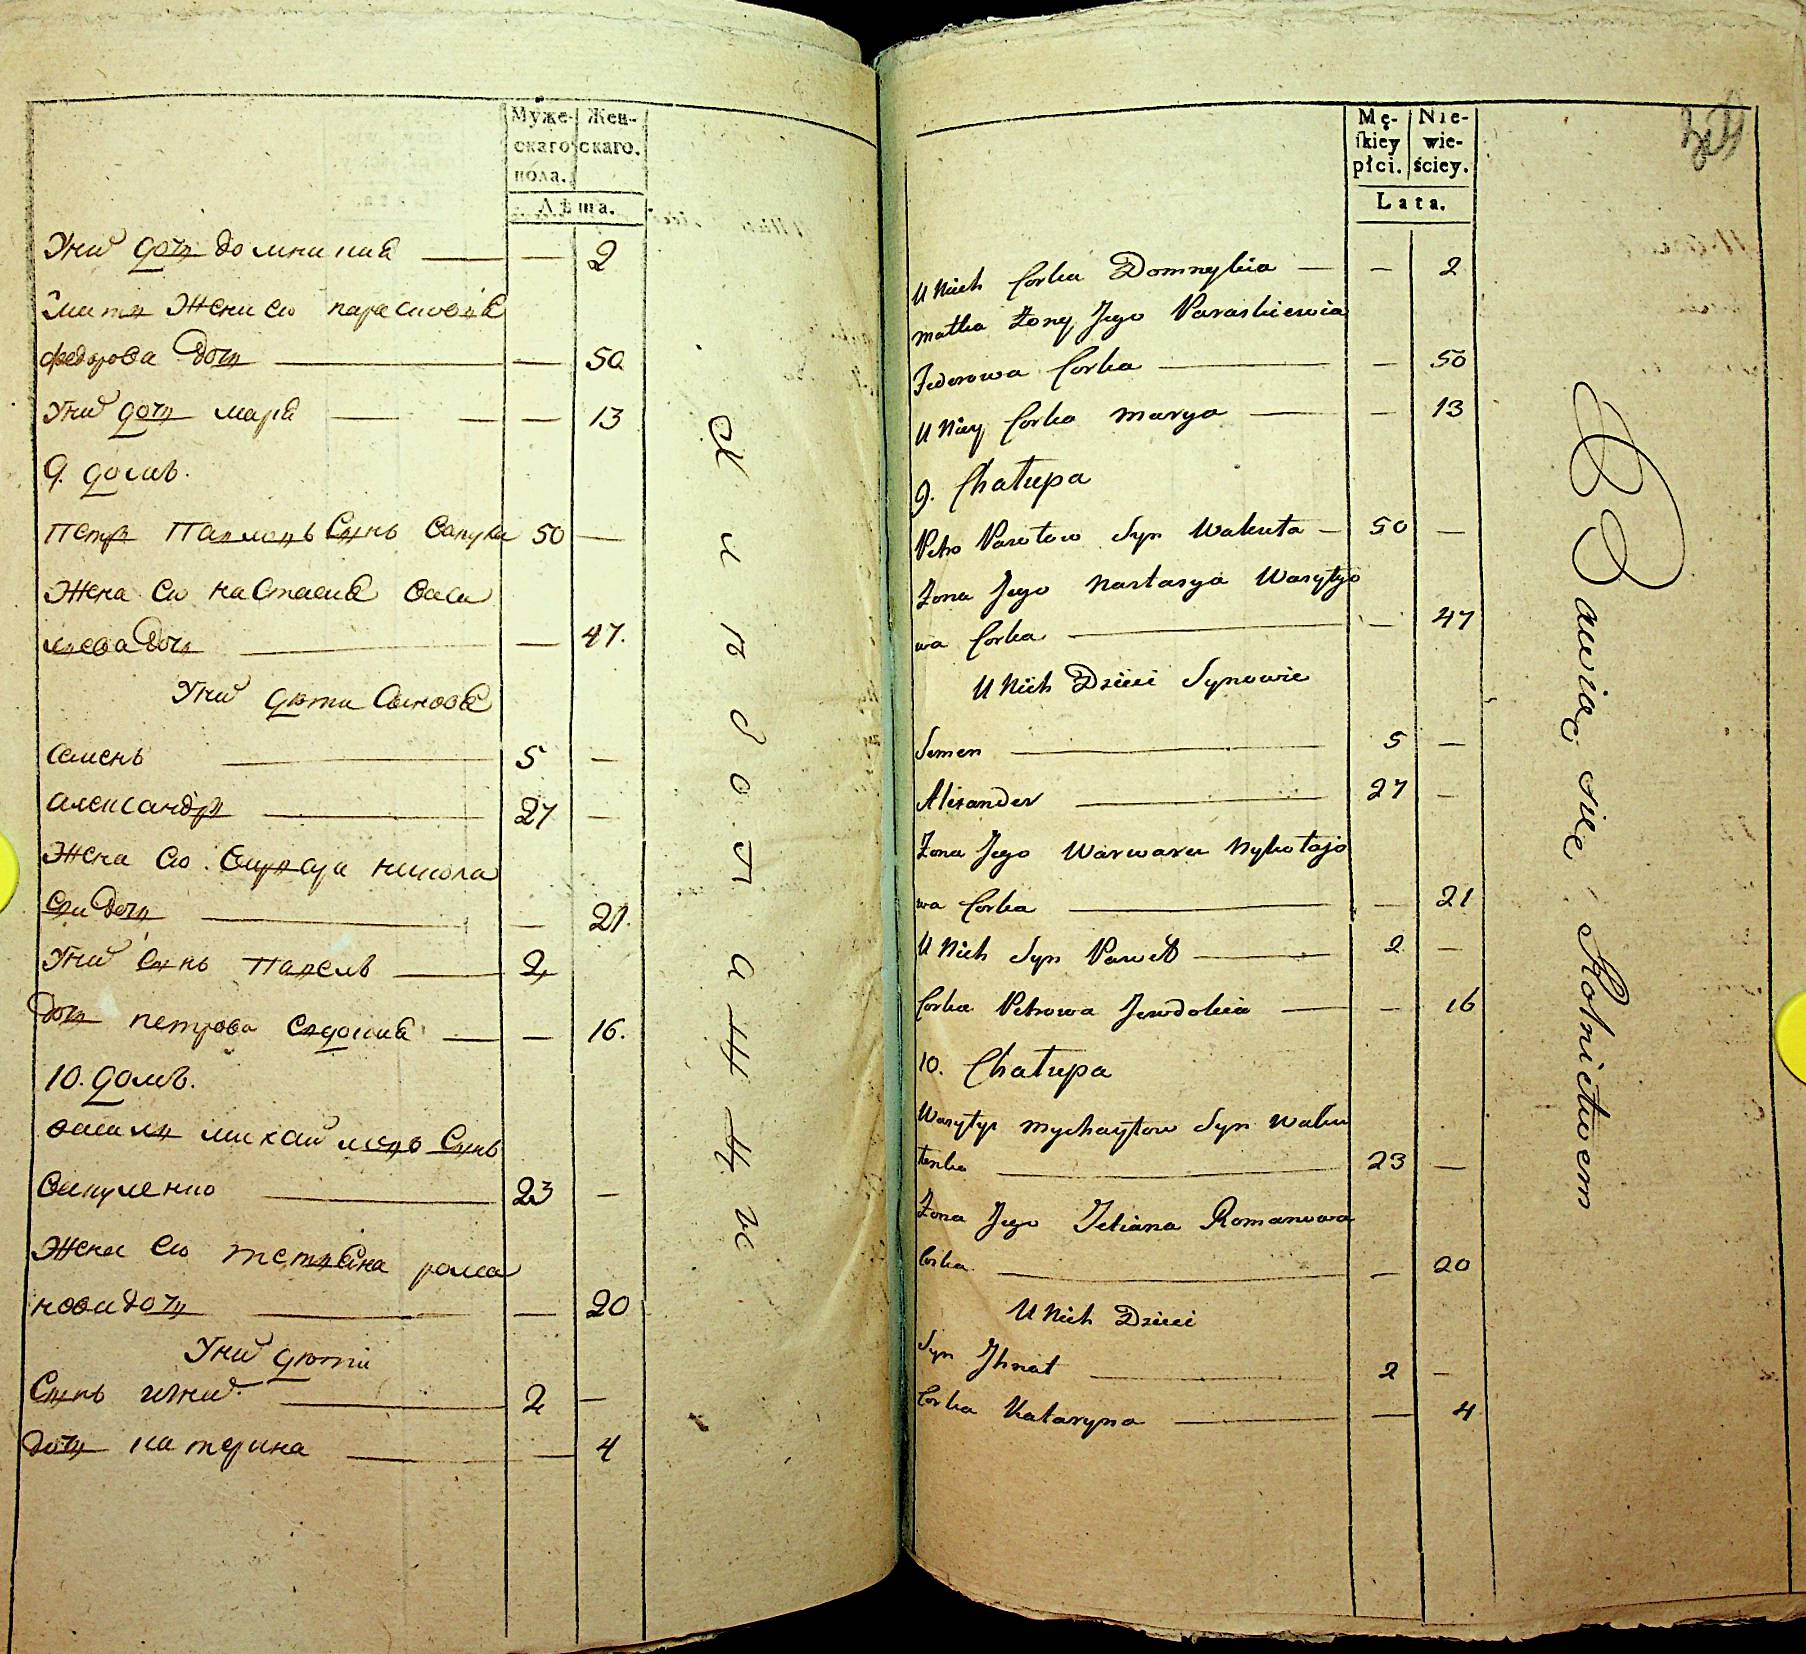 Муже- Жен-
скаго скаго.
пола.
Лѣта.
Унихъ дочь домникия 2
Мать жени его парасковѣя
федорова дочь 50
Унихъ дочь маря 13
9. домъ.
Петръ Павловъ Сынъ Вакула 50
Жена его настасия Васи
лева дочь 47.
Унихъ дѣти Синовя
Семенъ 5
Александръ 27
Жена его Варвара никола
ева дочь 21.
Унихъ Сынъ Павелъ 2
дочь петрова Евдокия 16.
10. домъ.
Василь михайловъ Сынъ
Вакуленко 23
Жена его Тетяна рома
нова дочь 20
Унихъ дѣти
Сынъ игнат 2
дочь катерина 4
хлебопашци
Mę- Nie-
skiey wie-
płci. ściey.
Lata.
U Nich Corka Domnykia 2
matka Żony Jego Paraskiewia
Fedorowa Corka 50
U Niey Corka Marya 13
9. Chałupa
Petro Pawłow Syn Wakuła 50
Żona Jego Nastasya Wasyly
wa Corka 47
U Nich Dzieci Synowie
Semen 5
Alexander 27
Żona Jego Warwara Nykołajo
wa Corka 21
U Nich Syn Paweł 2
Corka Petrowa Jewdokia 16
10. Chałupa
Wasylyi Mychayłow Syn Waku
lenko 23
Żona Jego Tetiana Romanowa
Corka 20
U Nich Dzieci
Syn Ihnat 2
Corka Kataryna 4
Bawiąc się Rolnictwem